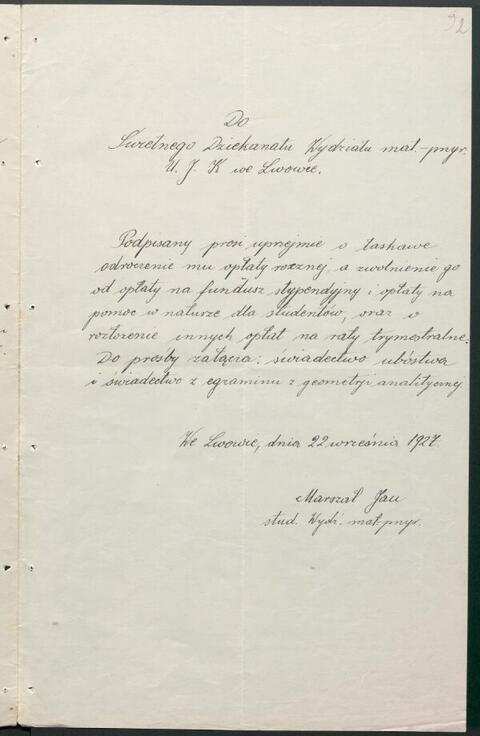 92
Do
Świetnego Dziekanatu Wydziału mat.-przyr.
U. J. K we Lwowie.
Podpisany prosi uprzejmie o łaskawe
odroczenie mu opłaty rocznej, a zwolnienie go
od opłaty na fundusz stypendyjny i opłaty na
pomoc w naturze dla studentów, oraz o
rozłożenie innych opłat na raty trymestralne.
Do prośby załącza: świadectwo ubóstwa
i świadectwo z egzaminu z geometrji analitycznej
We Lwowie, dnia 22 września 1927.
Marszał Jan
stud. Wydz. mat-przyr.